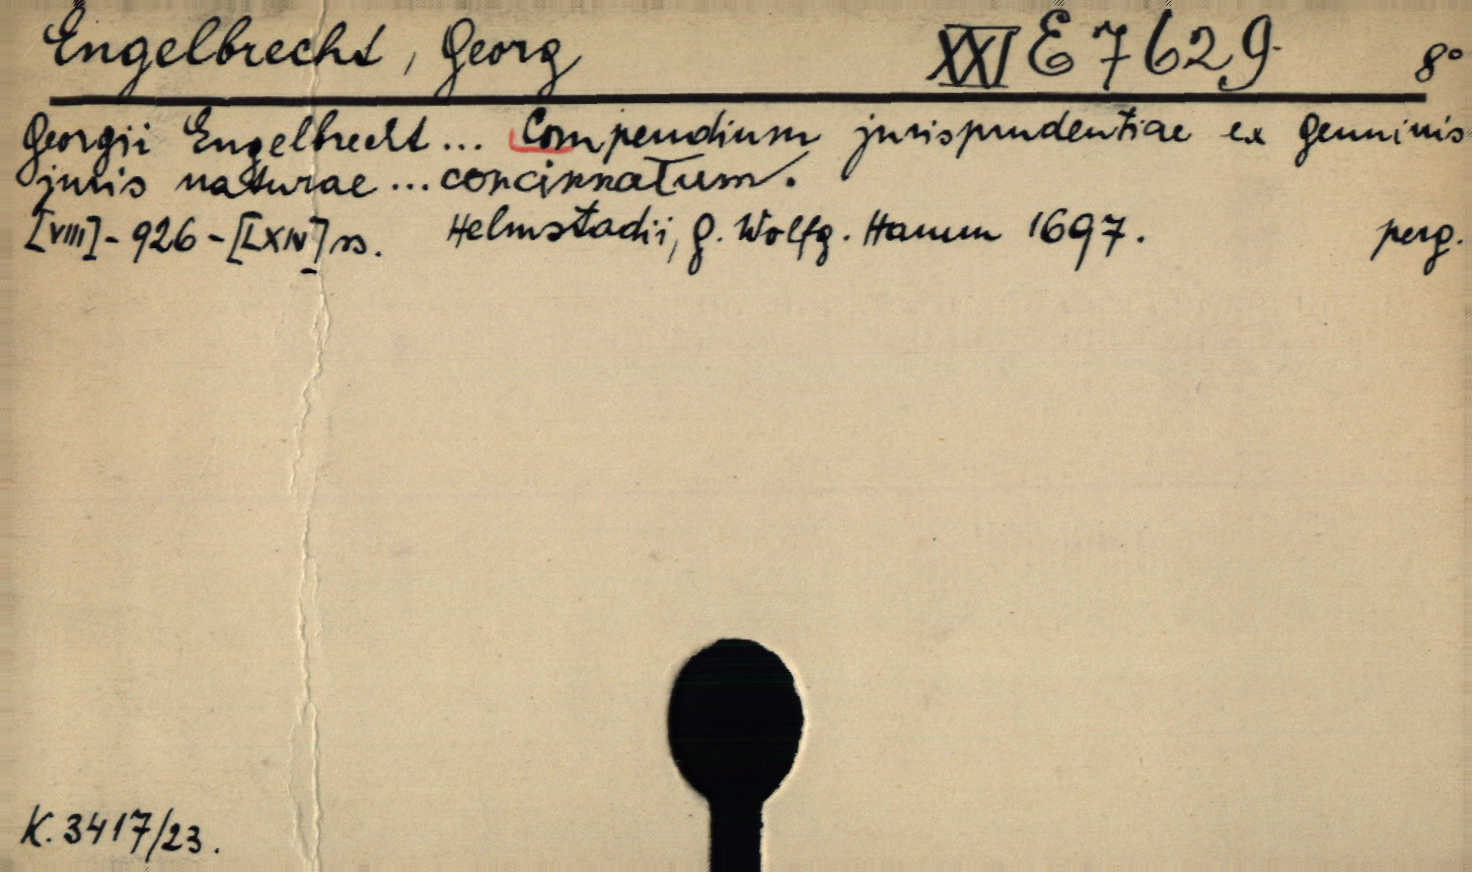 Engelbrecht, Georg XXI E 7629 8°
Georgii Engelbrecht... Compendium jurisprudentiae ex genuinis
juris naturae ... concinnatum.
[VIII] - 926 - [LXIV] ss. Helmstadii, G. Wolfg. Hamm 1697. perg.
K. 3417/23.